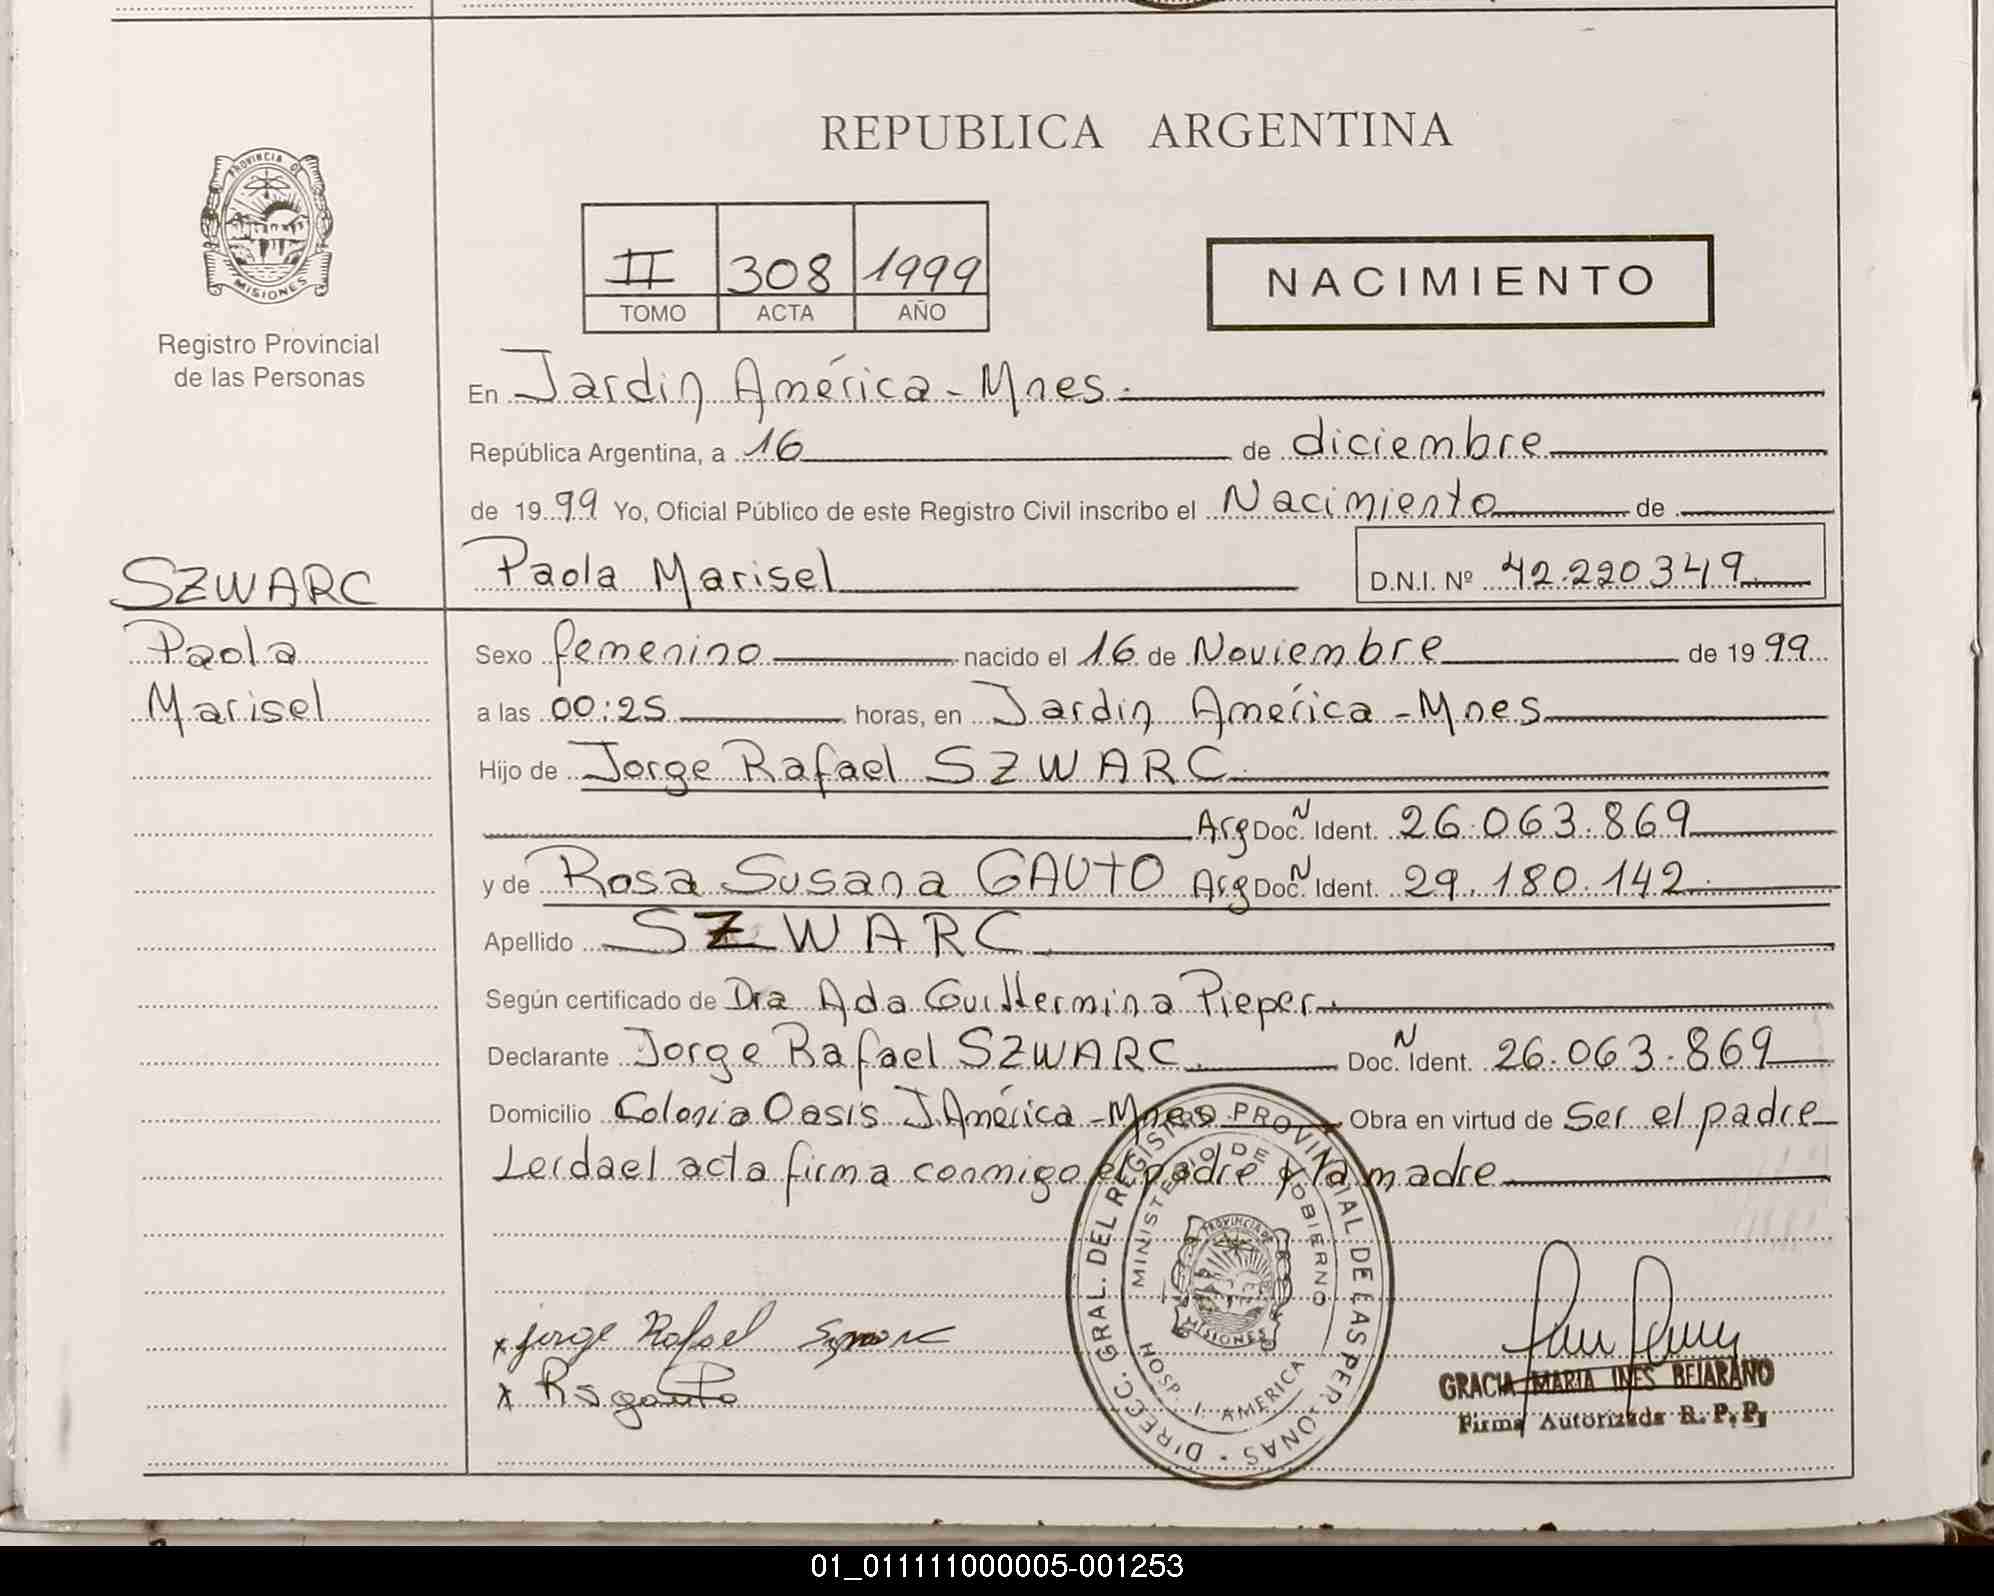 REPUBLICA ARGENTINA
PROVINCIA DE
MISIONES
Registro Provincial
de las Personas
II 308 1999
TOMO ACTA AÑO
NACIMIENTO
En Jardin América - Mnes.
República Argentina, a 16 de diciembre
de 1999 Yo, Oficial Público de este Registro Civil inscribo el Nacimiento de
SZWARC Paola Marisel D.N.I. Nº 42.220.349
Paola Sexo femenino nacido el 16 de Noviembre de 1999
Marisel a las 00:25 horas, en Jardin América - Mnes
Hijo de Jorge Rafael SZWARC
Arg Doc. N Ident. 26.063.869
y de Rosa Susana GAUTO Arg Doc. N Ident. 29.180.142
Apellido SZWARC
Según certificado de Dra Ada Guillermina Pieper
Declarante Jorge Rafael SZWARC Doc. N Ident. 26.063.869
Domicilio Colonia Oasis J. América - Mnes Obra en virtud de Ser el padre
Leida el acta firma conmigo el padre y la madre
DIREC. GRAL. DEL REGISTRO PROVINCIAL DE LAS PERSONAS
MINISTERIO DE GOBIERNO
PROVINCIA DE
MISIONES
HOSP. I. AMERICA
x Jorge Rafael
x Rs gauto
GRACIA MARIA INES BEJARANO
Firma Autorizada R. P. P.
01_011111000005-001253